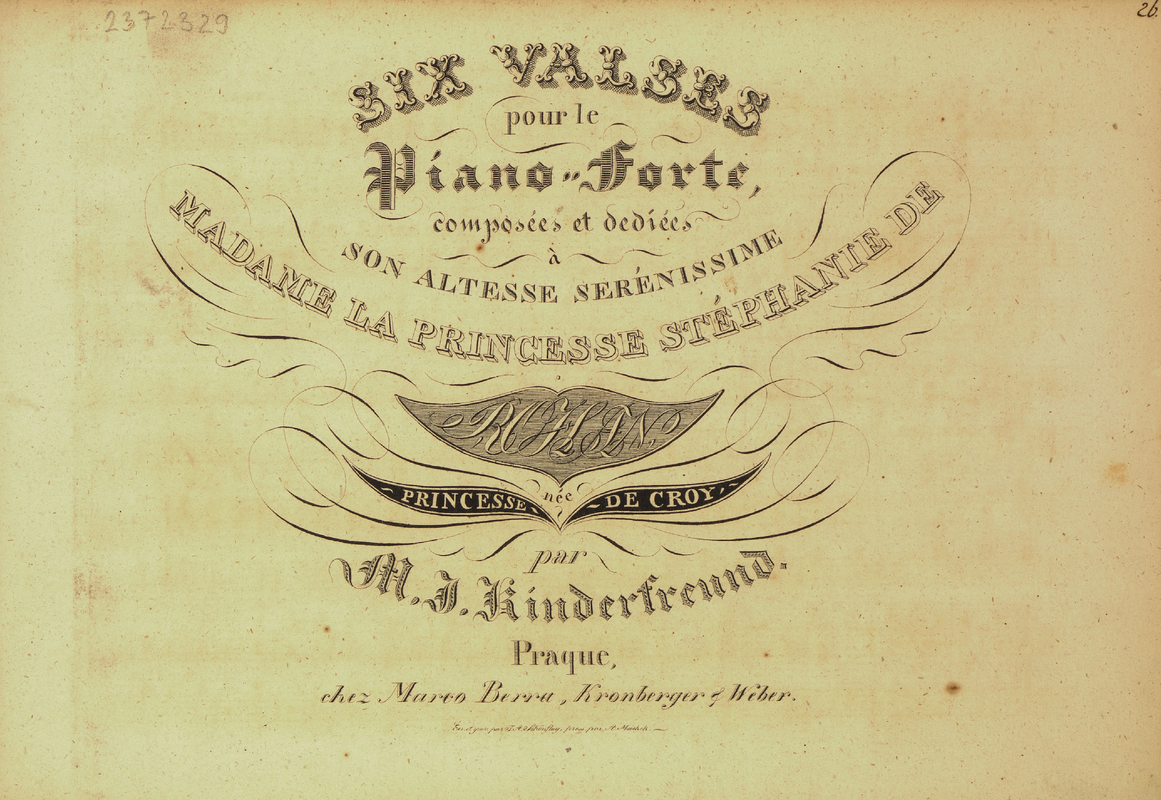 2372329
26.
SIX VALSES
pour le
Piano-Forte,
composées et dediées
à
SON ALTESSE SERÉNISSIME
MADAME LA PRINCESSE STÉPHANIE DE
ROHAN
née
PRINCESSE DE CROY,
par
M. J. Kinderfreund.
Praque,
chez Marco Berra, Kronberger & Weber.